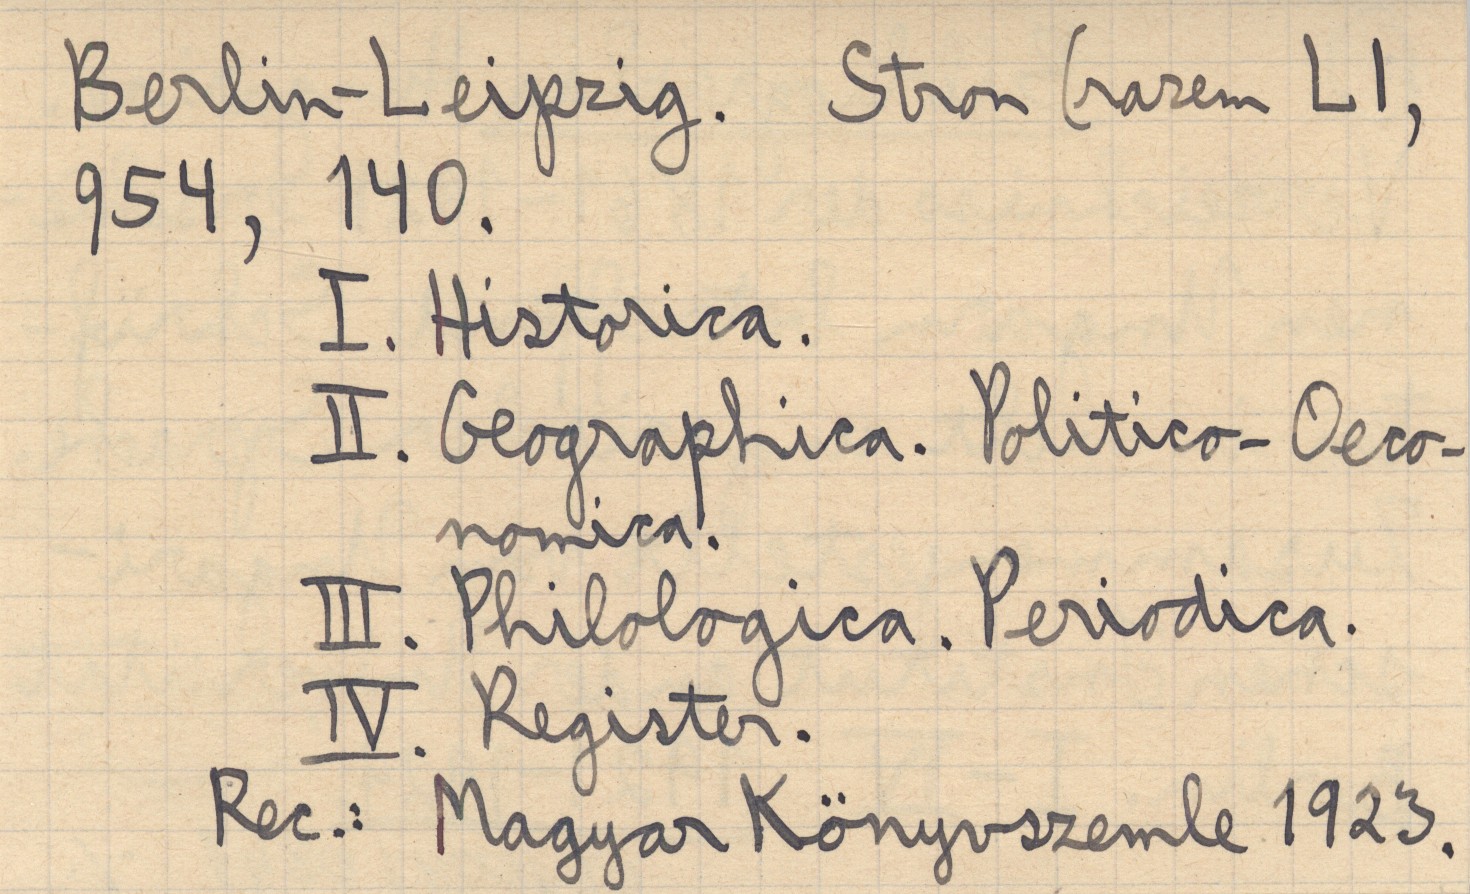 Berlin-Leipzig. Stron (razem LI,
954, 140.
I. Historica.
II. Geographica. Politico-Oeco-
nomica.
III. Philologica. Periodica.
IV. Register.
Rec.: Magyar Könyvszemle 1923.